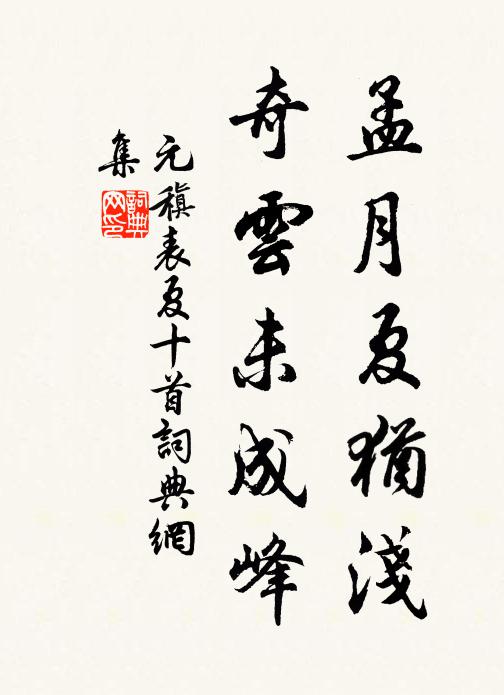 孟月夏猶淺
奇雲未成峰
元稹表夏十首詞典網
集
詞典網印